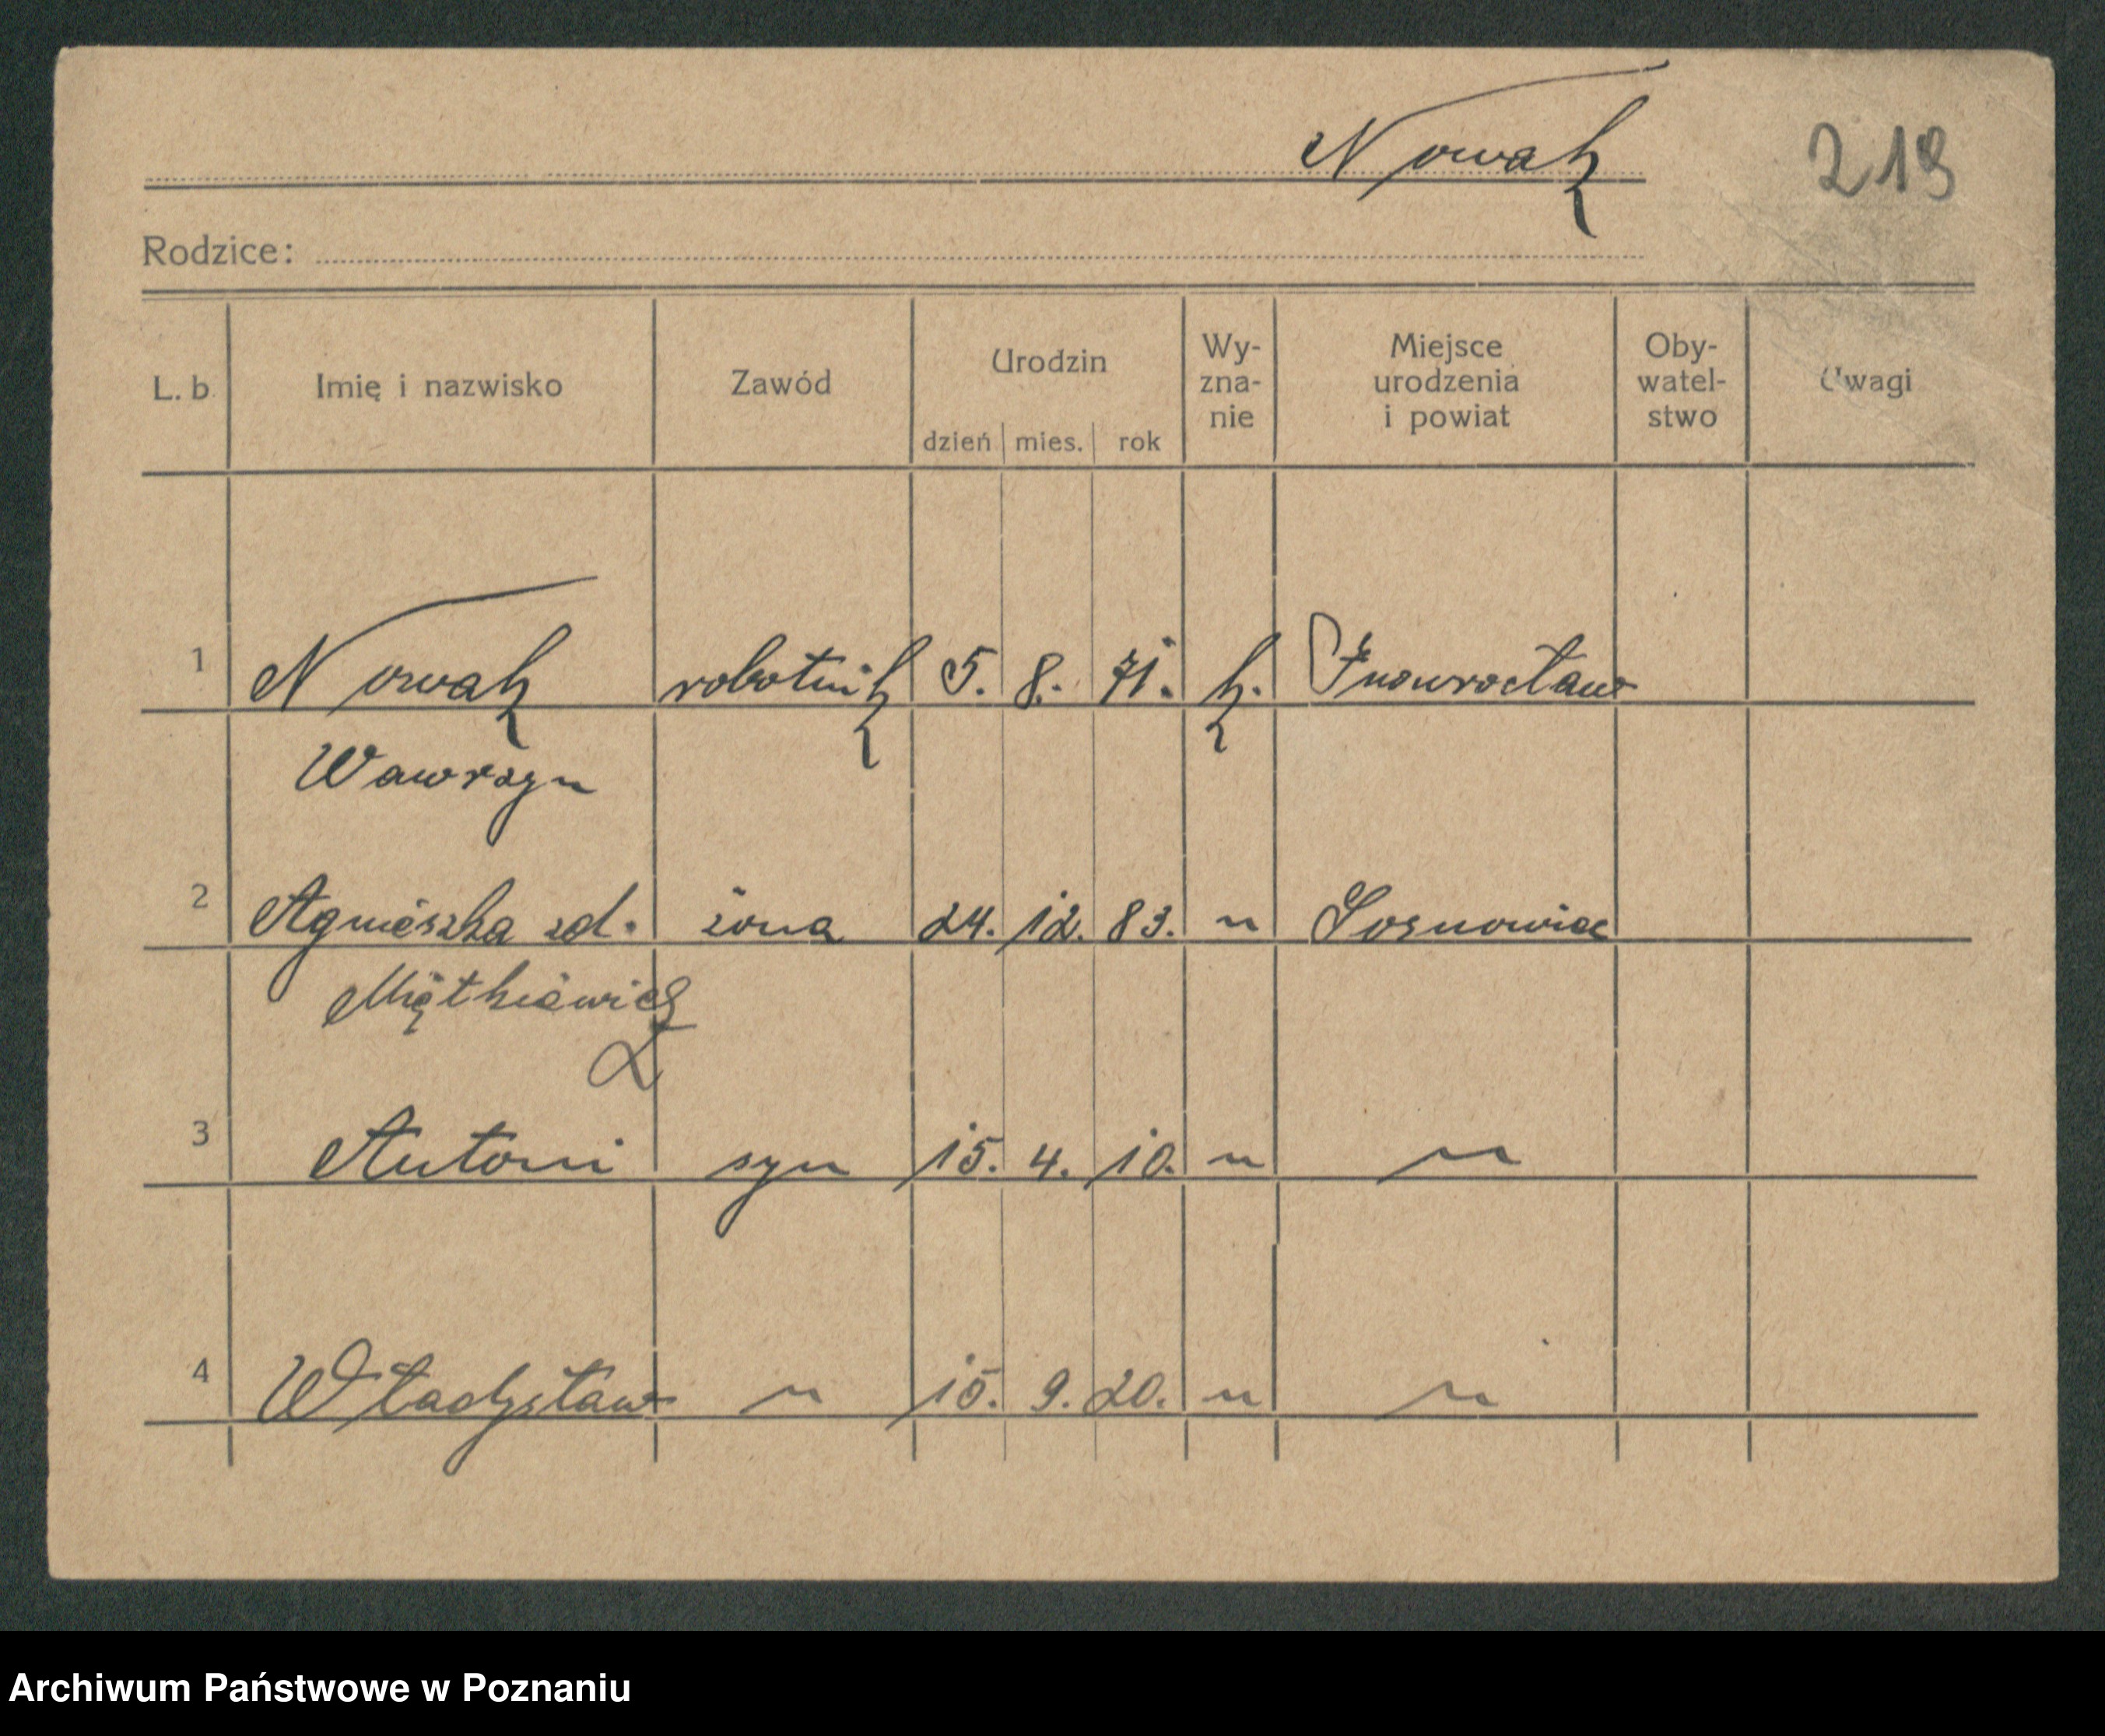 Nowak
219
Rodzice:
L. b. Imię i nazwisko Zawód Urodzin dzień mies. rok Wy-zna-nie Miejsce urodzenia i powiat Oby-watel-stwo Uwagi
1 Nowak robotnik 5. 8. 71. k. Inowrocław
Wawrzyn
2 Agnieszka zd. żona 24. 12. 83. " Sosnowiec
Miętkiewicz
3 Antoni syn 15. 4. 10. " "
4 Władysław " 15. 9. 20. " "
Archiwum Państwowe w Poznaniu